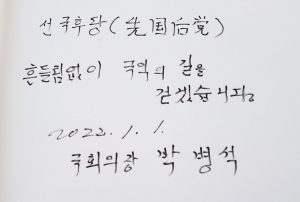 선국후당(先国后党)
흔들림없이 국익의 길을
걷겠습니다.
2022. 1. 1.
국회의장 박 병 석